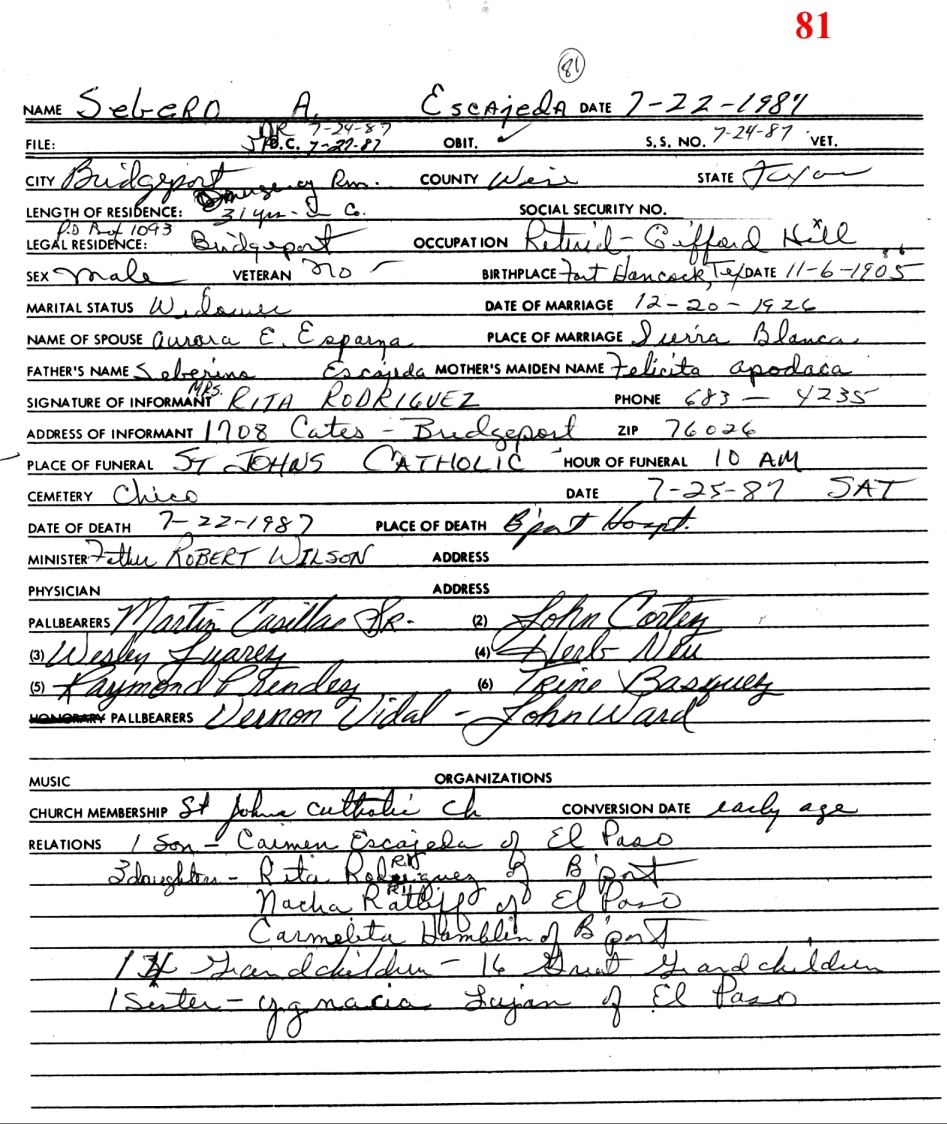 81
81
NAME Sebero A. Escajeda DATE 7-22-1987
FILE: DR 7-24-87 OBIT. ✓ S.S. NO. 7-24-87 VET.
D.C. 7-27-87
CITY Bridgeport Emergency Rm. COUNTY Wise STATE Texas
LENGTH OF RESIDENCE: 31 yrs - Co. SOCIAL SECURITY NO.
P.O Box 1093
LEGAL RESIDENCE: Bridgeport OCCUPATION Retired - Gifford Hill
SEX Male VETERAN No BIRTHPLACE Fort Hancock, Tex DATE 11-6-1905
MARITAL STATUS Widower DATE OF MARRIAGE 12-20-1926
NAME OF SPOUSE Aurora E. Esparza PLACE OF MARRIAGE Sierra Blanca
FATHER'S NAME Seberino Escajeda MOTHER'S MAIDEN NAME Felicita Apodaca
SIGNATURE OF INFORMANT MRS. RITA RODRIGUEZ PHONE 683-4235
ADDRESS OF INFORMANT 1708 Cates - Bridgeport ZIP 76026
PLACE OF FUNERAL ST JOHNS CATHOLIC HOUR OF FUNERAL 10 AM
CEMETERY Chico DATE 7-25-87 SAT
DATE OF DEATH 7-22-1987 PLACE OF DEATH B'port Hospt.
MINISTER Father ROBERT WILSON ADDRESS
PHYSICIAN ADDRESS
PALLBEARERS Martin Casillas SR. (2) John Cortez
(3) Wesley Juarez (4) Herb Neu
(5) Raymond Prendez (6) Trine Basquez
HONORARY PALLBEARERS Vernon Vidal - John Ward
MUSIC ORGANIZATIONS
CHURCH MEMBERSHIP St Johns Catholic Ch CONVERSION DATE early age
RELATIONS 1 Son - Carmen Escajeda of El Paso
3 daughters - Rita Rodriguez of B'port
Nacha Ratliff of El Paso
Carmelita Hamblin of B'port
Grandchildren - 16 Great Grandchildren
1 Sister - Ygnacia Lujan of El Paso